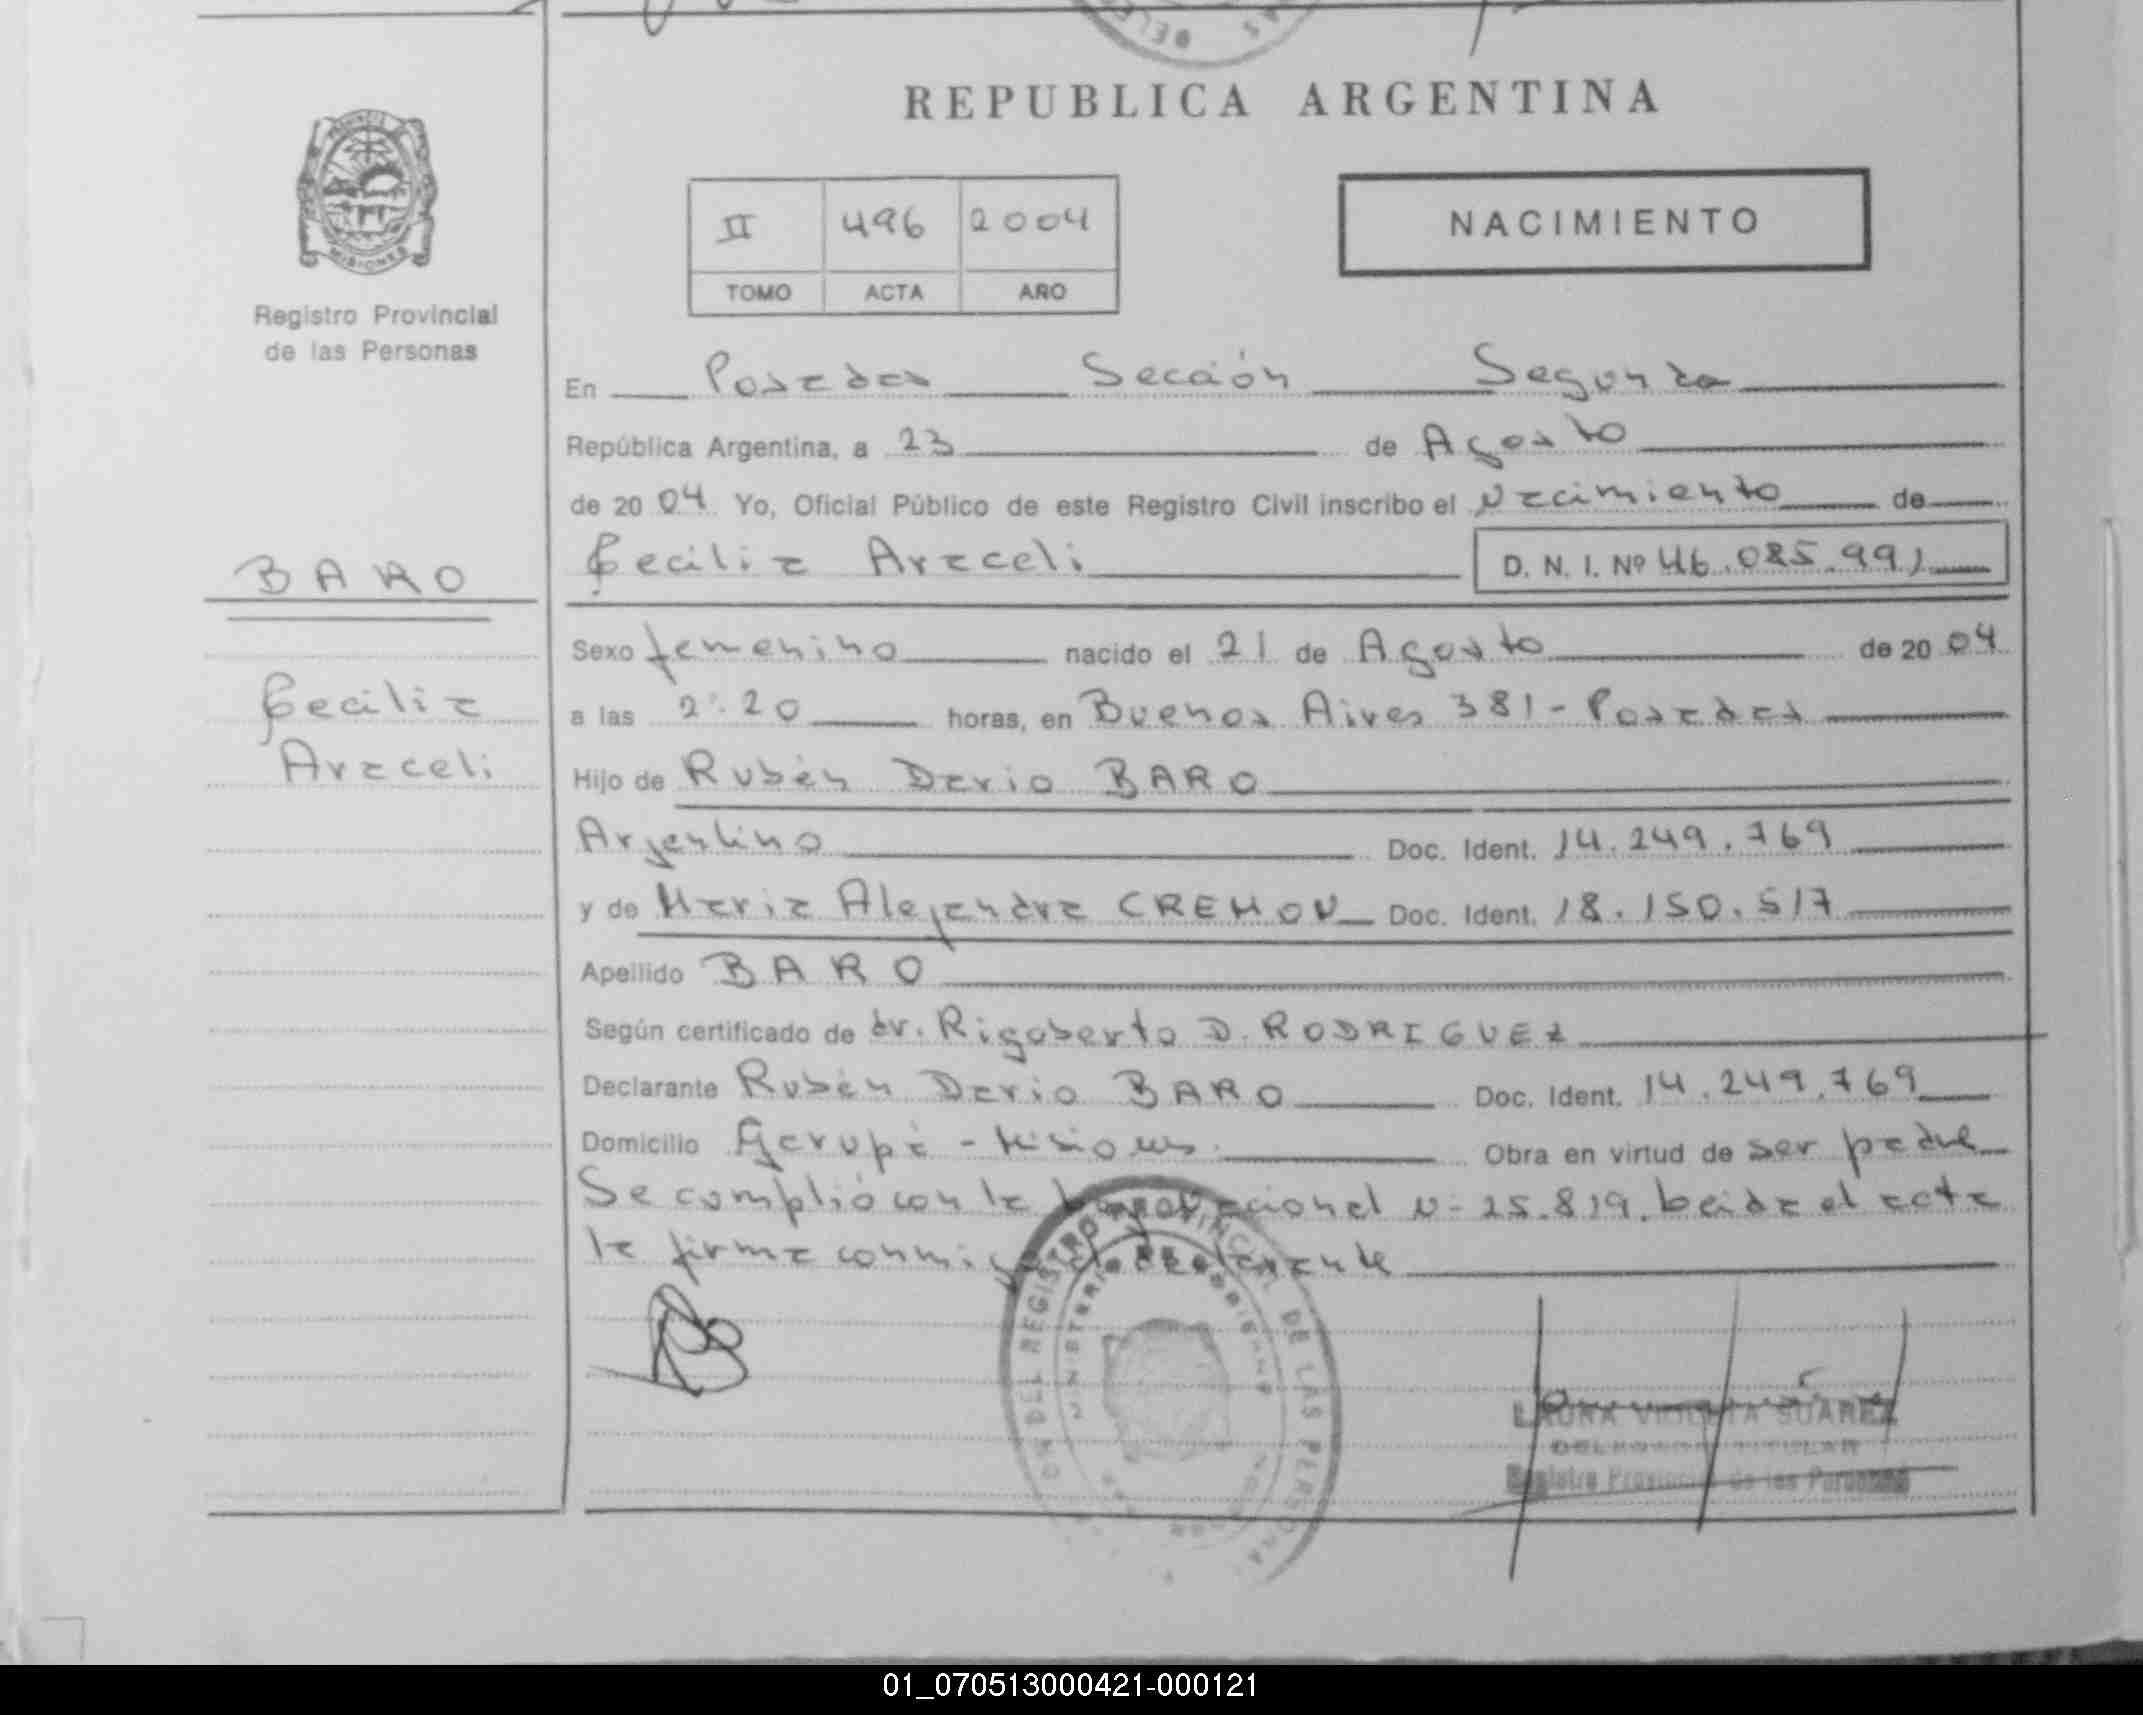 REPUBLICA ARGENTINA
PROVINCIA
MISIONES
Registro Provincial
de las Personas
II 496 2004
TOMO ACTA AÑO
NACIMIENTO
En Posadas Sección Segunda
República Argentina, a 23 de Agosto
de 20 04 Yo, Oficial Público de este Registro Civil inscribo el Nacimiento de
BARO
Cecilia Araceli D. N. I. Nº 46.085.991
Sexo femenino nacido el 21 de Agosto de 20 04
Cecilia
Araceli
a las 2:20 horas, en Buenos Aires 381 - Posadas
Hijo de Rubén Dario BARO
Argentino Doc. Ident. 14.249.769
y de Maria Alejandra CREMON Doc. Ident. 18.150.517
Apellido BARO
Según certificado de dr. Rigoberto D. RODRIGUEZ
Declarante Rubén Dario BARO Doc. Ident. 14.249.769
Domicilio Garupá - Misiones Obra en virtud de ser padre
Se cumplió con la ley nacional N- 25.819. Leida el acta
la firma conmigo el declarante
REGISTRO PROVINCIAL DE LAS PERSONAS
MINISTERIO DE GOBIERNO
LAURA VIOLETA SUAREZ
DELEGADA TITULAR
Registro Provincial de las Personas
01_070513000421-000121